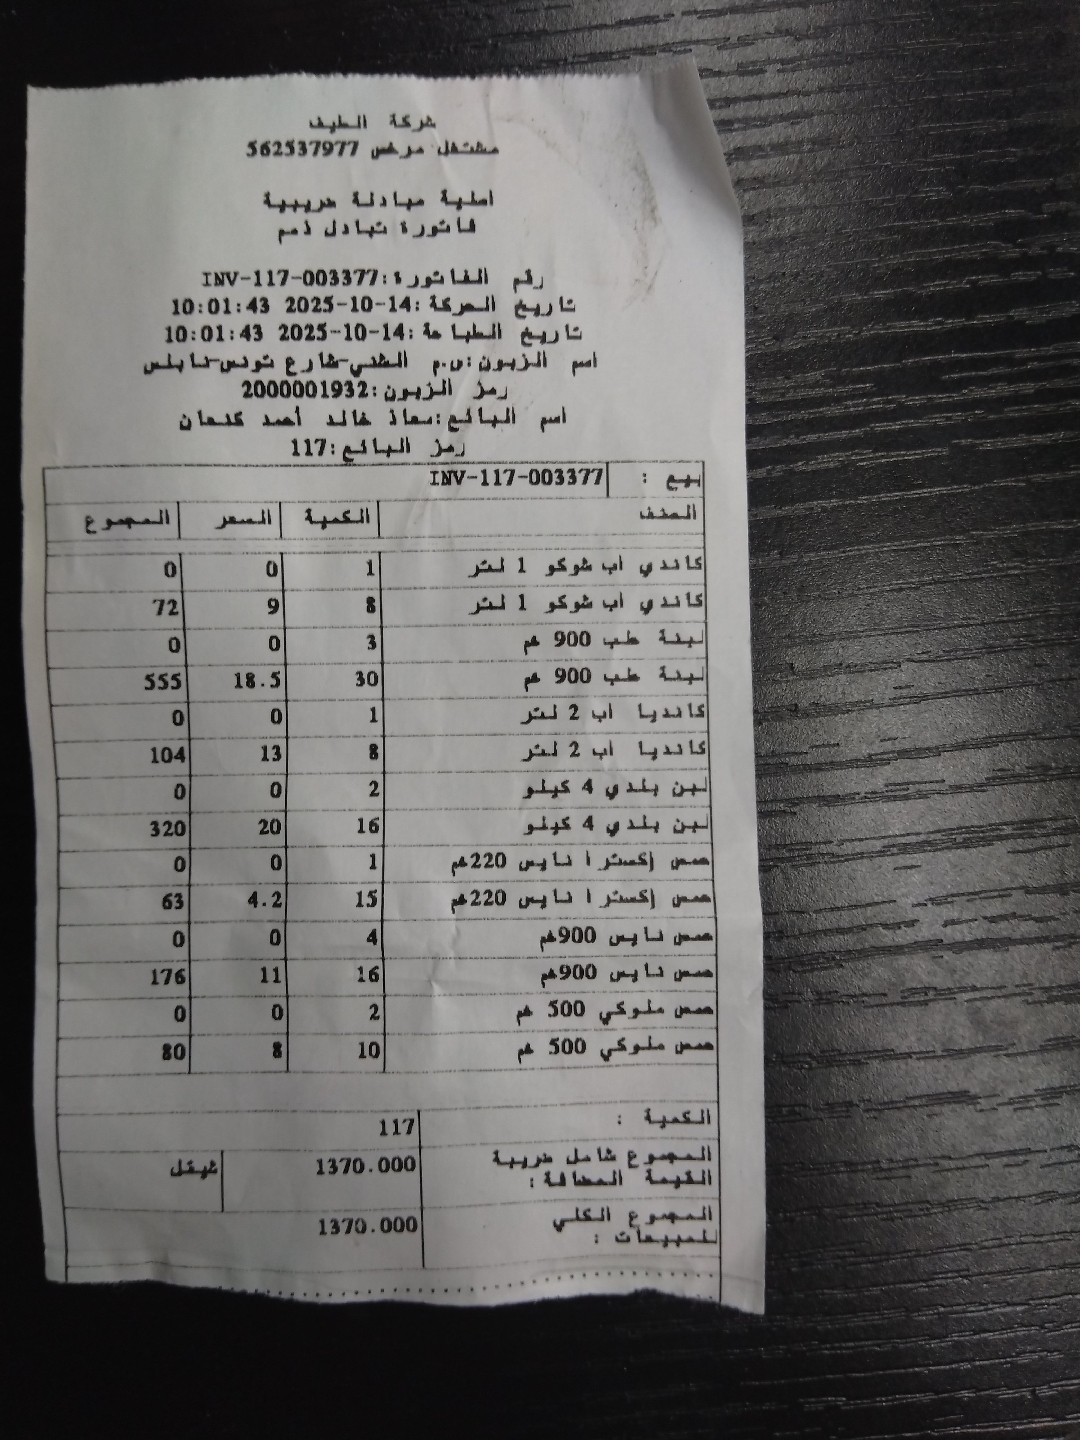 شركة الطيف
مشتغل مرخص 562537977
اصلية مبادلة ضريبية
فاتورة تبادل ذمم
رقم الفاتورة:INV-117-003377
تاريخ الحركة:2025-10-14 10:01:43
تاريخ الطباعة:2025-10-14 10:01:43
اسم الزبون:س.م الشني-شارع تونس-نابلس
رمز الزبون:2000001932
اسم البائع:معاذ خالد أحمد كنعان
رمز البائع:117
بيع : INV-117-003377
الصنف الكمية السعر المجموع
كاندي اب شوكو 1 لتر 1 0 0
كاندي اب شوكو 1 لتر 8 9 72
لبنة طب 900 غم 3 0 0
لبنة طب 900 غم 30 18.5 555
كانديا اب 2 لتر 1 0 0
كانديا اب 2 لتر 8 13 104
لبن بلدي 4 كيلو 2 0 0
لبن بلدي 4 كيلو 16 20 320
حمص إكسترا نايس 220غم 1 0 0
حمص إكسترا نايس 220غم 15 4.2 63
حمص نايس 900غم 4 0 0
حمص نايس 900غم 16 11 176
حمص ملوكي 500 غم 2 0 0
حمص ملوكي 500 غم 10 8 80
الكمية : 117
المجموع شامل ضريبة 1370.000 شيقل
القيمة المضافة :
المجموع الكلي 1370.000
للمبيعات :